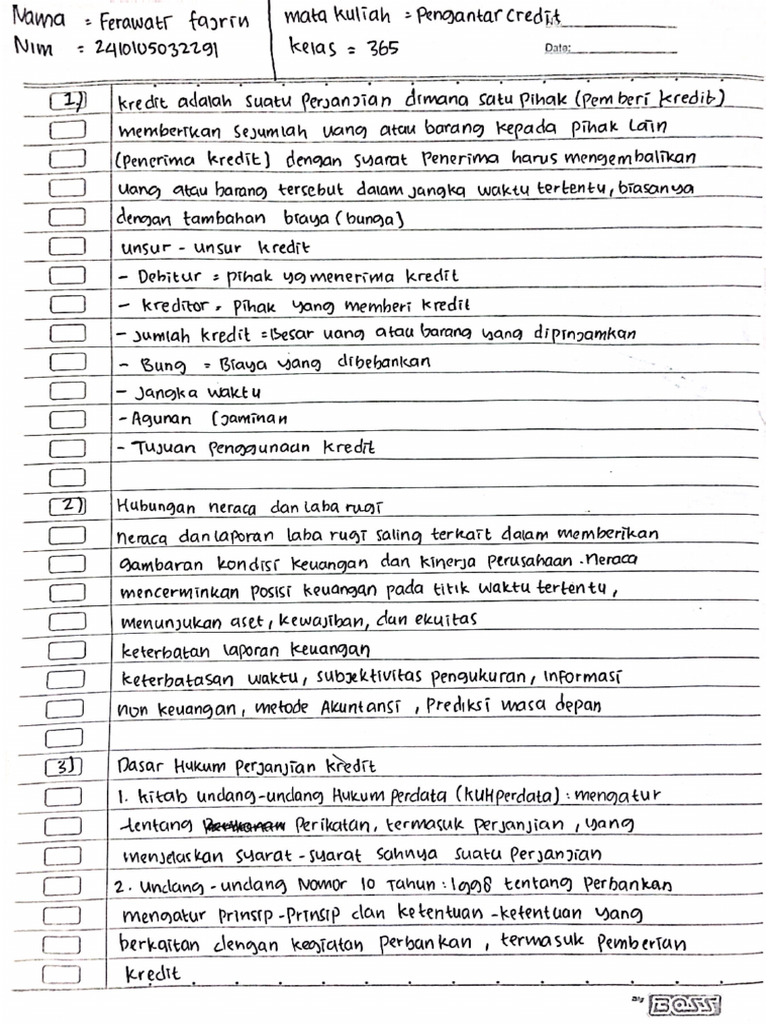 Nama = Ferawati fajrin
mata kuliah = Pengantar Credit
Nim = 2410105032291
kelas = 365
Date:
1) kredit adalah suatu perjanjian dimana satu pihak (pemberi kredit)
memberikan sejumlah uang atau barang kepada pihak lain
(penerima kredit) dengan syarat Penerima harus mengembalikan
uang atau barang tersebut dalam jangka waktu tertentu, biasanya
dengan tambahan biaya (bunga)
unsur - unsur kredit
- Debitur = pihak yg menerima kredit
- kreditor = pihak yang memberi kredit
- Jumlah kredit = Besar uang atau barang yang dipinjamkan
- Bung = Biaya yang dibebankan
- Jangka waktu
- Agunan (jaminan
- Tujuan Penggunaan kredit
2) Hubungan neraca dan laba rugi
neraca dan laporan laba rugi saling terkait dalam memberikan
gambaran kondisi keuangan dan kinerja perusahaan. neraca
mencerminkan posisi keuangan pada titik waktu tertentu,
menunjukan aset, kewajiban, dan ekuitas
keterbatan laporan keuangan
keterbatasan waktu, subjektivitas pengukuran, informasi
non keuangan, metode Akuntansi, Prediksi masa depan
3) Dasar Hukum Perjanjian kredit
1. kitab undang-undang Hukum perdata (KUHperdata) : mengatur
tentang Perikatan, termasuk perjanjian, yang
menjelaskan syarat - syarat sahnya suatu Perjanjian
2. undang - undang Nomor 10 Tahun : 1998 tentang Perbankan
mengatur prinsip - Prinsip dan ketentuan - ketentuan yang
berkaitan dengan kegiatan perbankan, termasuk Pemberian
kredit
BOSS